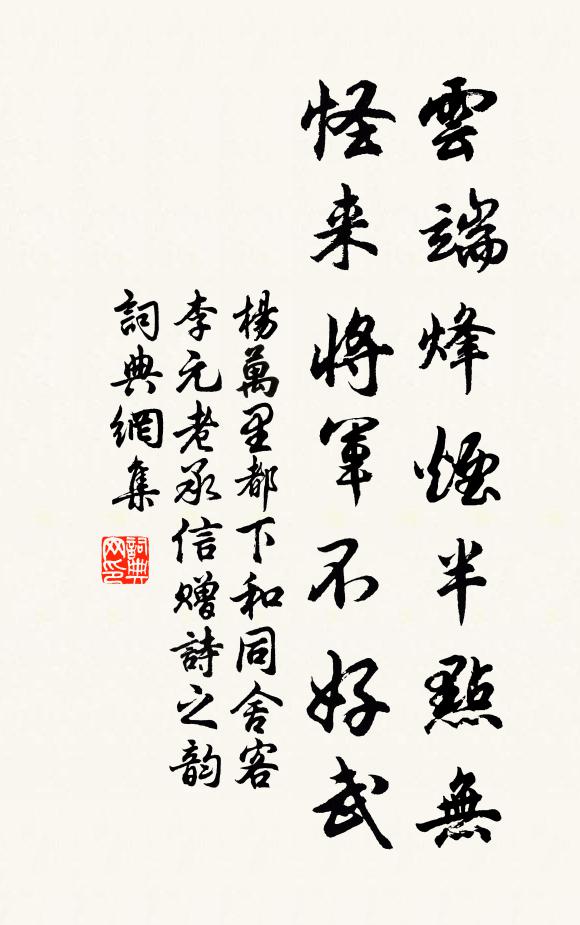 雲端烽煙半點無
怪来將軍不好武
楊萬里都下和同舍客
李元老承信赠詩之韵
詞典網集
詞典网印